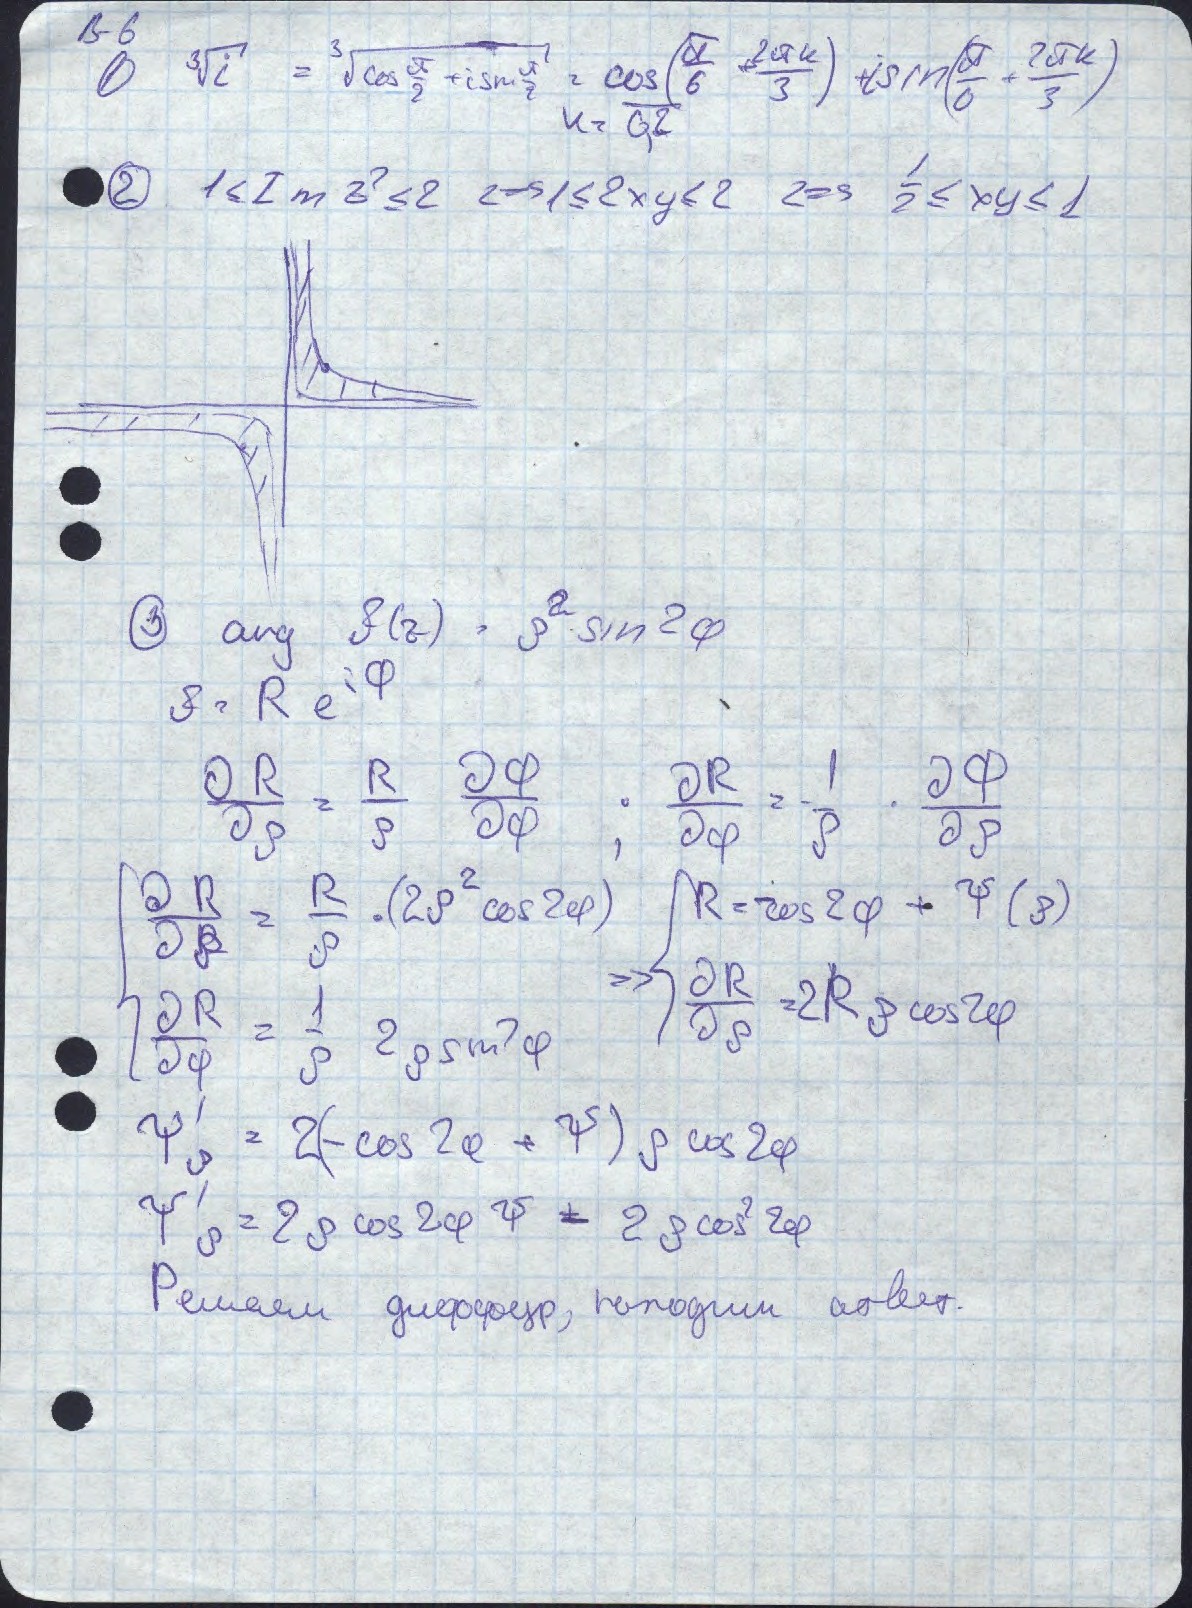 В-6
① ∛i = ∛(cos π/2 + i sin π/2) = cos(π/6 + 2πk/3) + i sin(π/6 + 2πk/3)
k = 0,2
② 1 ≤ Im z² ≤ 2 <=> 1 ≤ 2xy ≤ 2 <=> 1/2 ≤ xy ≤ 1
③ arg f(z) = ρ² sin 2φ
f = R e^{iΦ}
∂R/∂ρ = R/ρ ∂Φ/∂φ ; ∂R/∂φ = -1/ρ · ∂Φ/∂ρ
{ ∂R/∂ρ = R/ρ · (2ρ² cos 2φ) => { R = -cos 2φ + Ψ(ρ)
∂R/∂φ = 1/ρ 2ρ sin 2φ ∂R/∂ρ = 2Rρ cos 2φ
Ψ'ρ = 2(-cos 2φ + Ψ) ρ cos 2φ
Ψ'ρ = 2ρ cos 2φ Ψ - 2ρ cos² 2φ
Решаем диффур, находим ответ.